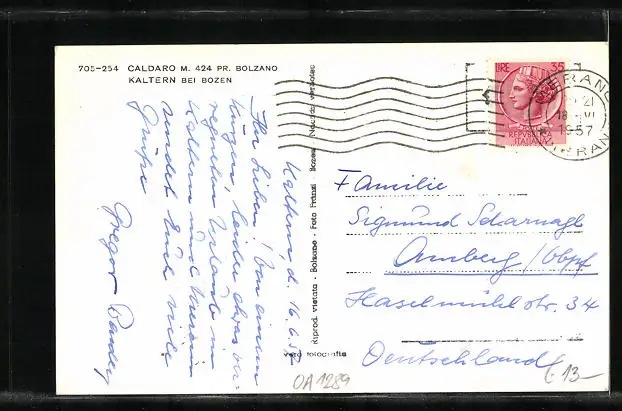 705-254 CALDARO M. 424 PR. BOLZANO
KALTERN BEI BOZEN
Kaltern d. 16.6.57
Ihr Lieben! Von einem
kurzen, leider etwas ver-
regneten Urlaub in
Kaltern und Meran
sendet Euch viele
Grüße
Gregor
Riprod. vietata - Bolzano - Foto Fränzl - Bozen - Nachdr. verboten
vera fotografia
LIRE 35
REPUBBLICA
ITALIANA
MERANO
21
18 VI
1957
MERAN
Familie
Sigmund Scharnagl
Amberg/Obpf
Haselmühlstr. 34
Deutschland
OA1289
13-